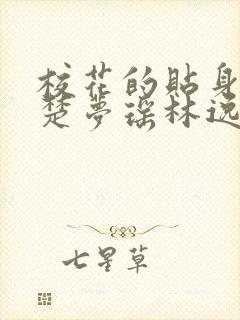 校花的贴身
楚梦瑶林逸
七星草